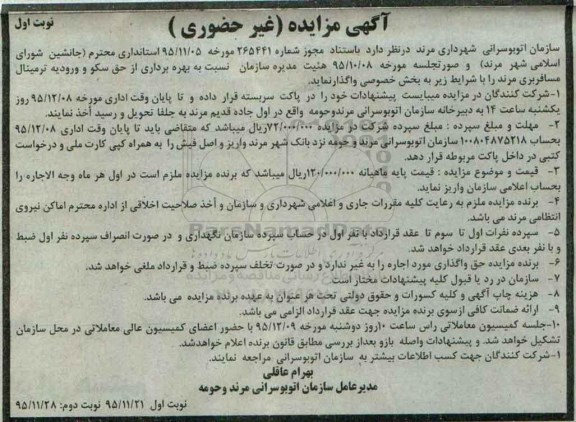 نوبت اول
آگهی مزایده (غیر حضوری )
سازمان اتوبوسرانی شهرداری مرند درنظر دارد باستناد مجوز شماره ۲۶۵۴۴۱ مورخه ۹۵/۱۱/۰۵ استانداری محترم (جانشین شورای
اسلامی شهر مرند) و صورتجلسه مورخه ۹۵/۱۰/۰۸ هئیت مدیره سازمان نسبت به بهره برداری از حق سکو و ورودیه ترمینال
مسافربری مرند را با شرایط زیر به بخش خصوصی واگذارنماید.
۱-شرکت کنندگان در مزایده میبایست پیشنهادات خود را در پاکت سربسته قرار داده و تا پایان وقت اداری مورخه ۹۵/۱۲/۰۸ روز
یکشنبه ساعت ۱۴ به دبیرخانه سازمان اتوبوسرانی مرندوحومه واقع در اول جاده قدیم مرند به جلفا تحویل و رسید أخذ نمایند.
۲- مهلت و مبلغ سپرده : مبلغ سپرده شرکت در مزایده ۷۲/۰۰۰/۰۰۰ریال میباشد که متقاضی باید تا پایان وقت اداری ۹۵/۱۲/۰۸
بحساب ۱۰۰۸۰۴۸۷۵۲۱۸ سازمان اتوبوسرانی مرند و حومه نزد بانک شهر مرند واریز و اصل فیش را به همراه کپی کارت ملی و درخواست
کتبی در داخل پاکت مربوطه قرار دهد.
۳- قیمت و موضوع مزایده : قیمت پایه ماهیانه ۱۲۰/۰۰۰/۰۰۰ریال میباشد که برنده مزایده ملزم است در اول هر ماه وجه الاجاره را
بحساب اعلامی سازمان واریز نماید.
۴- برنده مزایده ملزم به رعایت کلیه مقررات جاری و اعلامی شهرداری و سازمان و أخذ صلاحیت اخلاقی از اداره محترم اماکن نیروی
انتظامی مرند می باشد.
۵- سپرده نفرات اول تا سوم تا عقد قرارداد با نفر اول در حساب سپرده سازمان نگهداری و در صورت انصراف سپرده نفر اول ضبط
و با نفر بعدی عقد قرارداد خواهد شد.
۶- برنده مزایده حق واگذاری مورد اجاره را به غیر ندارد و در صورت تخلف سپرده ضبط و قرارداد ملغی خواهد شد.
۷- سازمان در رد یا قبول کلیه پیشنهادات مختار است
۸- هزینه چاپ آگهی و کلیه کسورات و حقوق دولتی تحت هر عنوان به عهده برنده مزایده می باشد.
۹- ارائه ضمانت کافی ازسوی برنده مزایده جهت عقد قرارداد الزامی می باشد.
۱۰-جلسه کمیسیون معاملاتی راس ساعت ۱۰روز دوشنبه مورخه ۹۵/۱۲/۰۹ با حضور اعضای کمیسیون عالی معاملاتی در محل سازمان
تشکیل خواهد شد. و پیشنهادات واصله بازو بعداز بررسی مطابق قانون برنده اعلام خواهدشد.
۱-شرکت کنندگان جهت کسب اطلاعات بیشتر به سازمان اتوبوسرانی مراجعه نمایند.
بهرام عاقلی
مدیرعامل سازمان اتوبوسرانی مرند وحومه
نوبت اول ۹۵/۱۱/۲۱ نوبت دوم: ۹۵/۱۱/۲۸